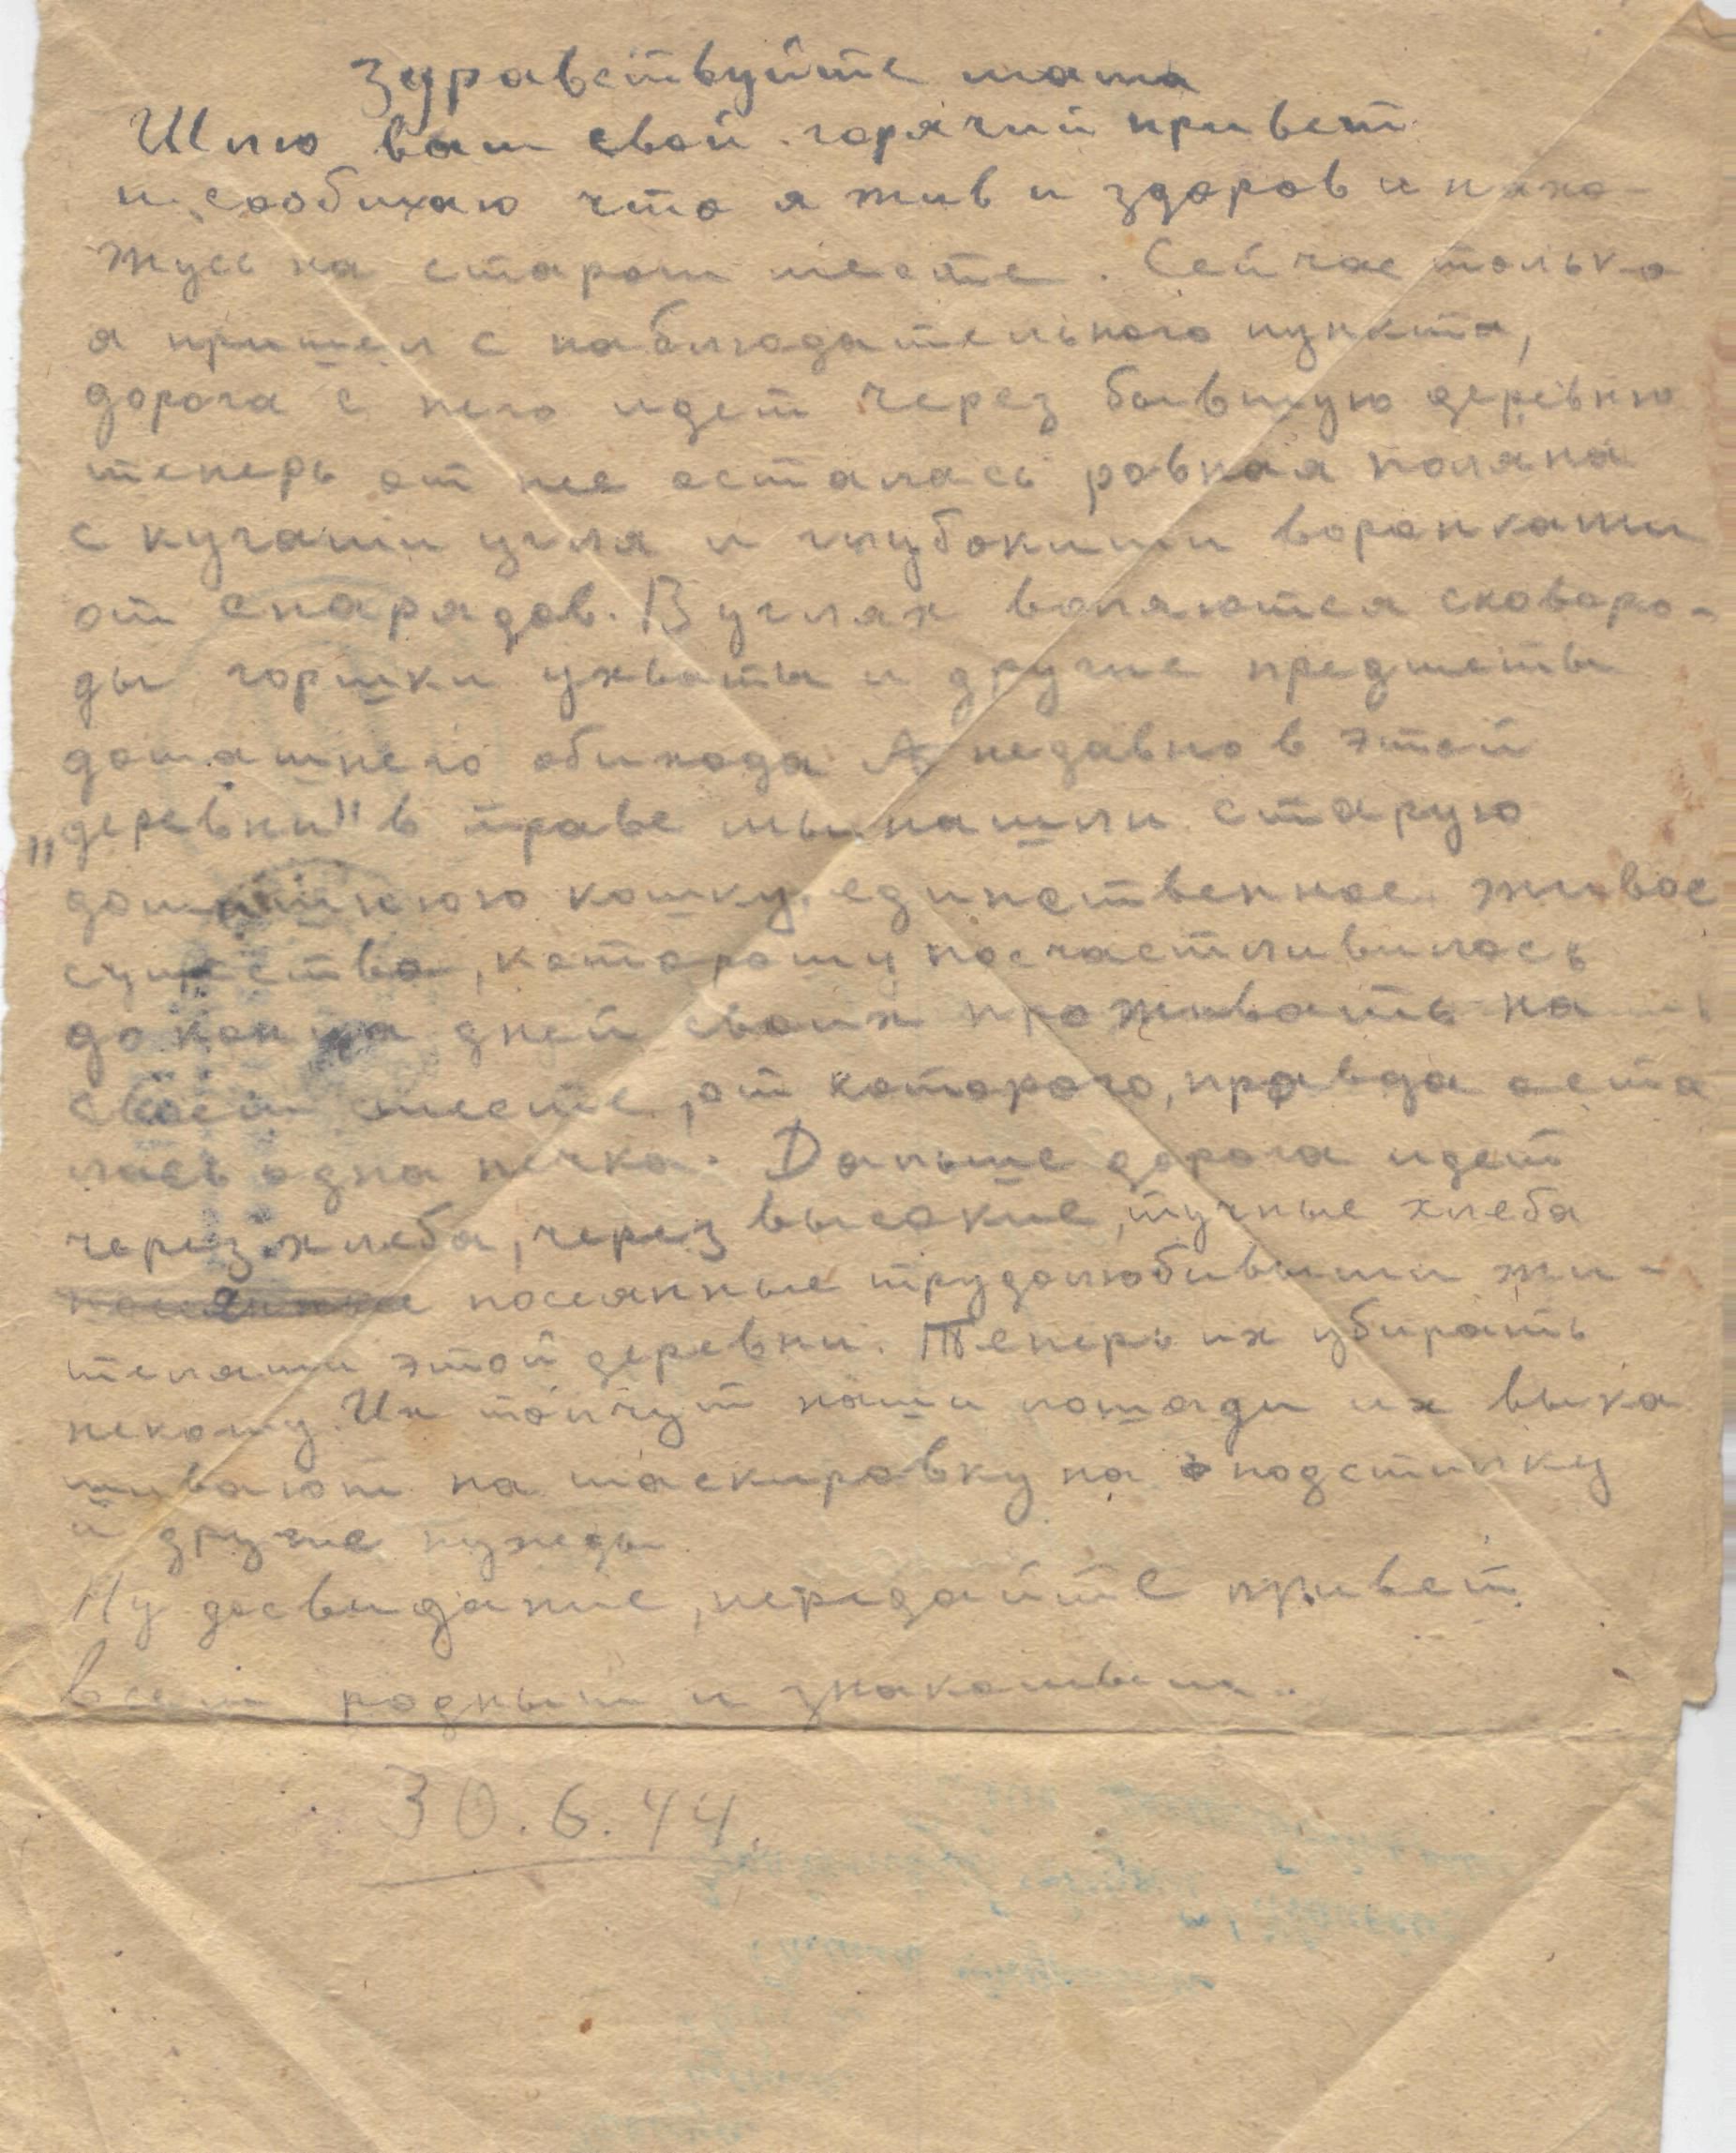 Здравствуйте мама
Шлю вам свой горячий привет
и сообщаю что я жив и здоров и нахо-
жусь на старом месте. Сейчас только
я пришел с наблюдательного пункта,
дорога с него идет через бывшую деревню
теперь от нее осталась ровная поляна
с кучами угля и глубокими воронками
от снарядов. В углях валяются сковоро-
ды горшки ухваты и другие предметы
домашнего обихода А недавно в этой
„деревни" в траве мы нашли старую
домашнюю кошку, единственное живое
существо, которому посчастливилось
до конца дней своих проживать на
своем месте, от которого, правда оста
лась одна печка. Дальше дорога идет
через хлеба, через высокие, тучные хлеба
посеянные посеянные трудолюбивыми жи-
телями этой деревни. Теперь их убирать
некому. Их топчут наши лошади их выка
шивают на маскировку на подстилку
и другие нужды
Ну досвидание, передайте привет
всем родным и знакомым.
30.6.44.